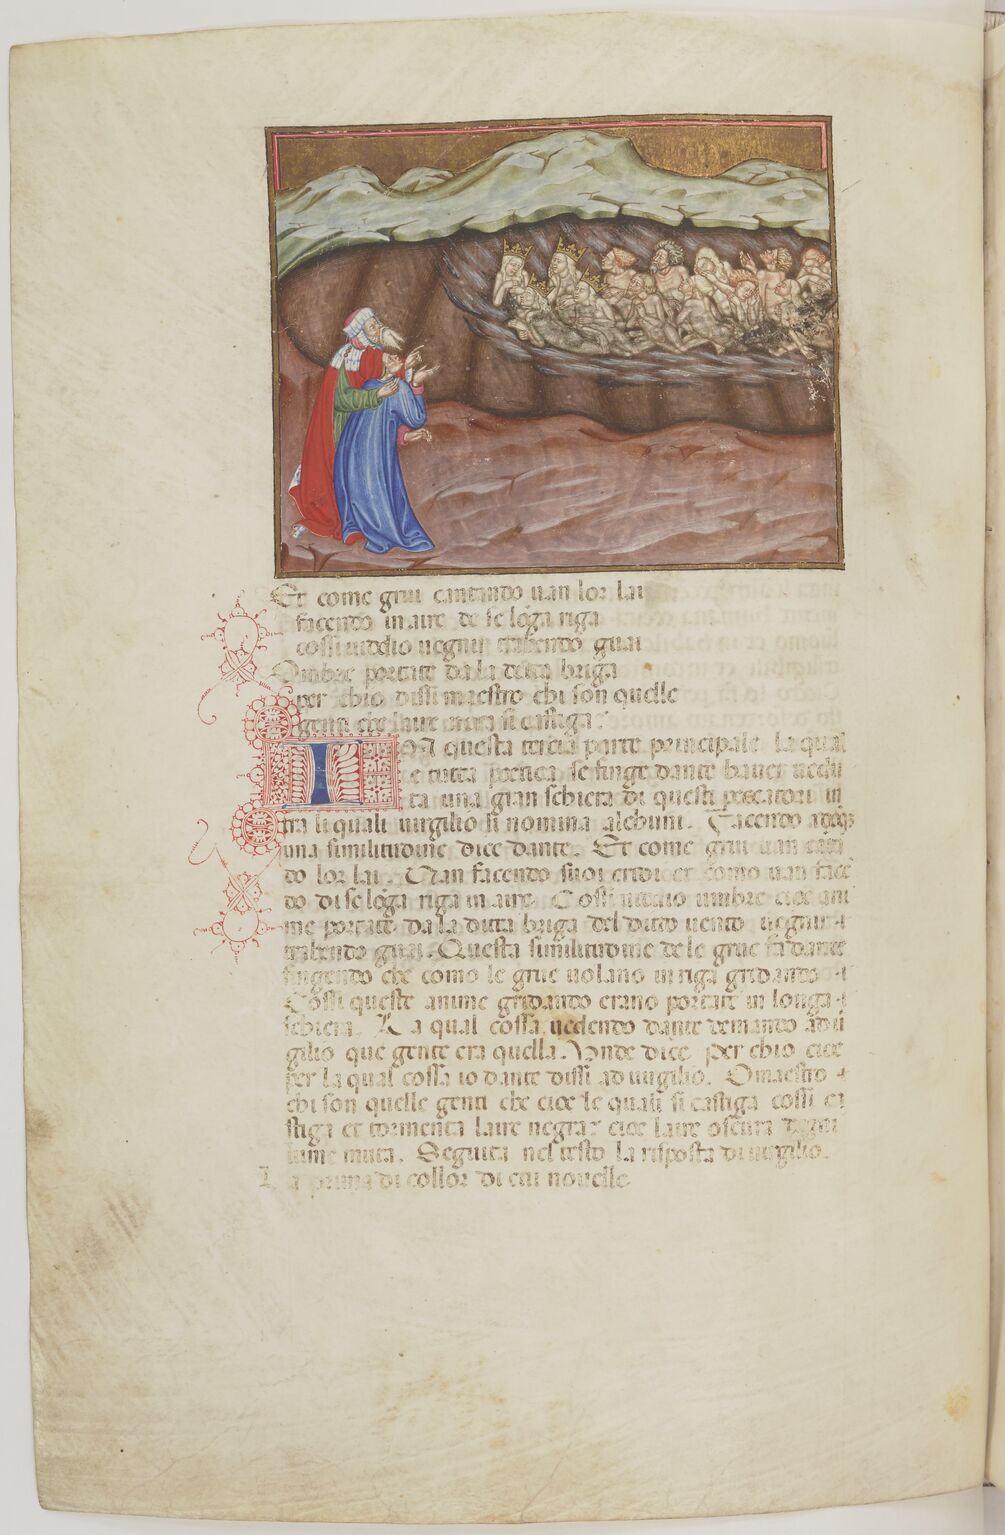 Et come gru cantando uan lor lai
facendo in aire de se lo̅ga riga
cossi uidio uegnir trahendo guai
Ombre portate da la dicta briga
per chio dissi maestro chi son quelle
genti che laire si castiga
I questa tercia parte principale la qual
e tutta poetica se finge dante hauer uedu
ta una gran schiera di questi peccatori in
tra li quali uirgilio si nomina alchuni. Facendo adoq̅
una similitudine dice dante. Et come gru uan can
do lor lai. Uan facendo suoi cridi et como uan face
do di se lo̅ga riga in aire. Cossi uidio umbre cioe ani
me portate da la dicta briga del dicto uento uegnir
trahendo guai. Questa similitudine de le grue fa dante
fingendo che como le grue uolano in riga gridando
Cossi queste anime gridando erano portate in longa
schiera. La qual cossa uedendo dante demando ad ui
gilio que gente era quella. Unde dice per chio cioe
per la qual cossa io dante dissi ad uirgilio. O maestro
chi son quelle genti che cioe le quali si castiga cossi ca
stiga et tormenta laire negra cioe laire oscura
lume muta. Seguita nel testo la risposta di uirgilio.
La prima di collor di cui nouelle